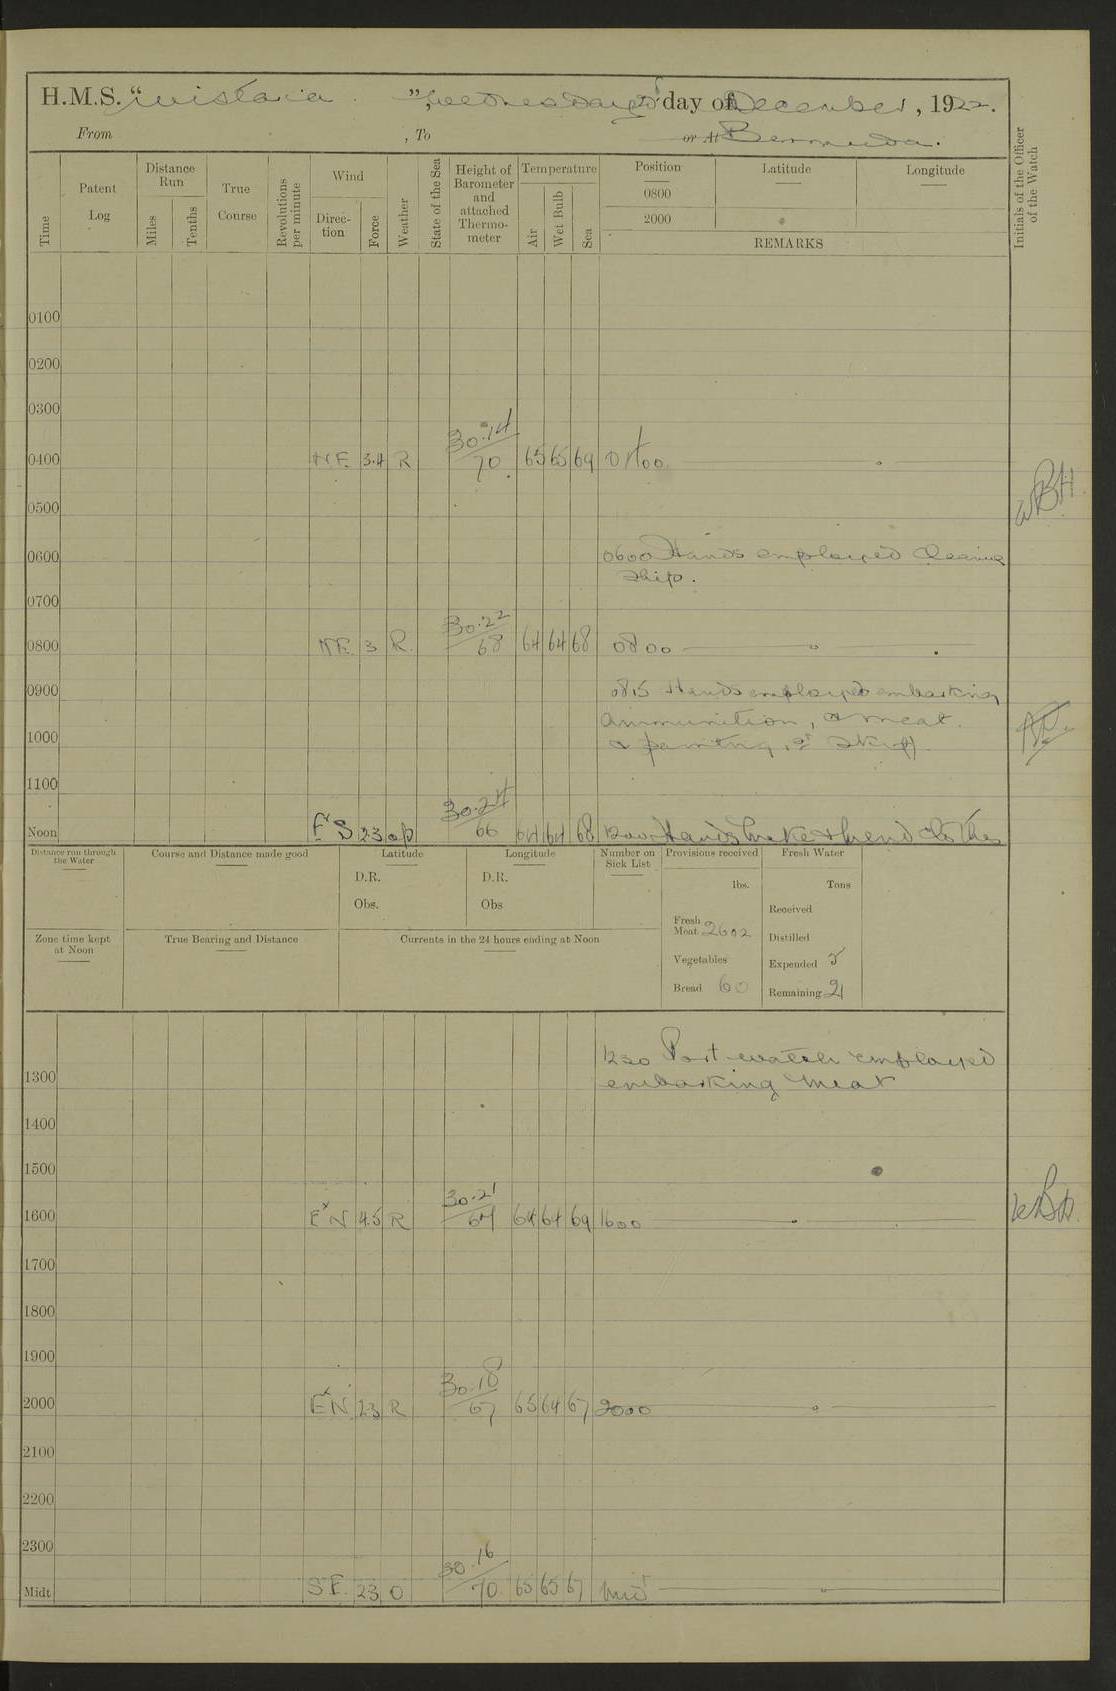 H.M.S. "Wistaria", Wednesday day of December, 1922.
From , To or At Bermuda.
Time
Patent Log
Distance Run
Miles
Tenths
True Course
Revolutions per minute
Wind
Direction
Force
Weather
State of the Sea
Height of Barometer and attached Thermometer
Temperature
Air
Wet Bulb
Sea
Position
0800
2000
Latitude
Longitude
REMARKS
Initials of the Officer of the Watch
0100
0200
0300
30.14
0400 NE 3.4 R 70 65 65 69 0400
WBH
0500
0600 0600 Hands employed cleaning
ship.
0700
30.22
0800 NE 3 R 68 64 64 68 0800
0900 0815 Hands employed embarking
ammunition, & meat.
1000 & painting, Skiff
1100
30.24
Noon ExS 23 op 66 64 64 68 1200 Hands make & mend clothes
Distance run through the Water
Course and Distance made good
Latitude
D.R.
Obs.
Longitude
D.R.
Obs
Number on Sick List
Provisions received
lbs.
Fresh Meat 2602
Vegetables
Bread 60
Fresh Water
Tons
Received
Distilled
Expended 5
Remaining 21
Zone time kept at Noon
True Bearing and Distance
Currents in the 24 hours ending at Noon
1230 Port watch employed
1300 embarking meat
1400
1500
30.21
1600 ExN 45 R 64 64 64 69 1600
WBH
1700
1800
1900
30.18
2000 ExN 23 R 67 65 64 67 2000
2100
2200
2300
30.16
Midt SE. 23 O 70 65 65 67 Midt